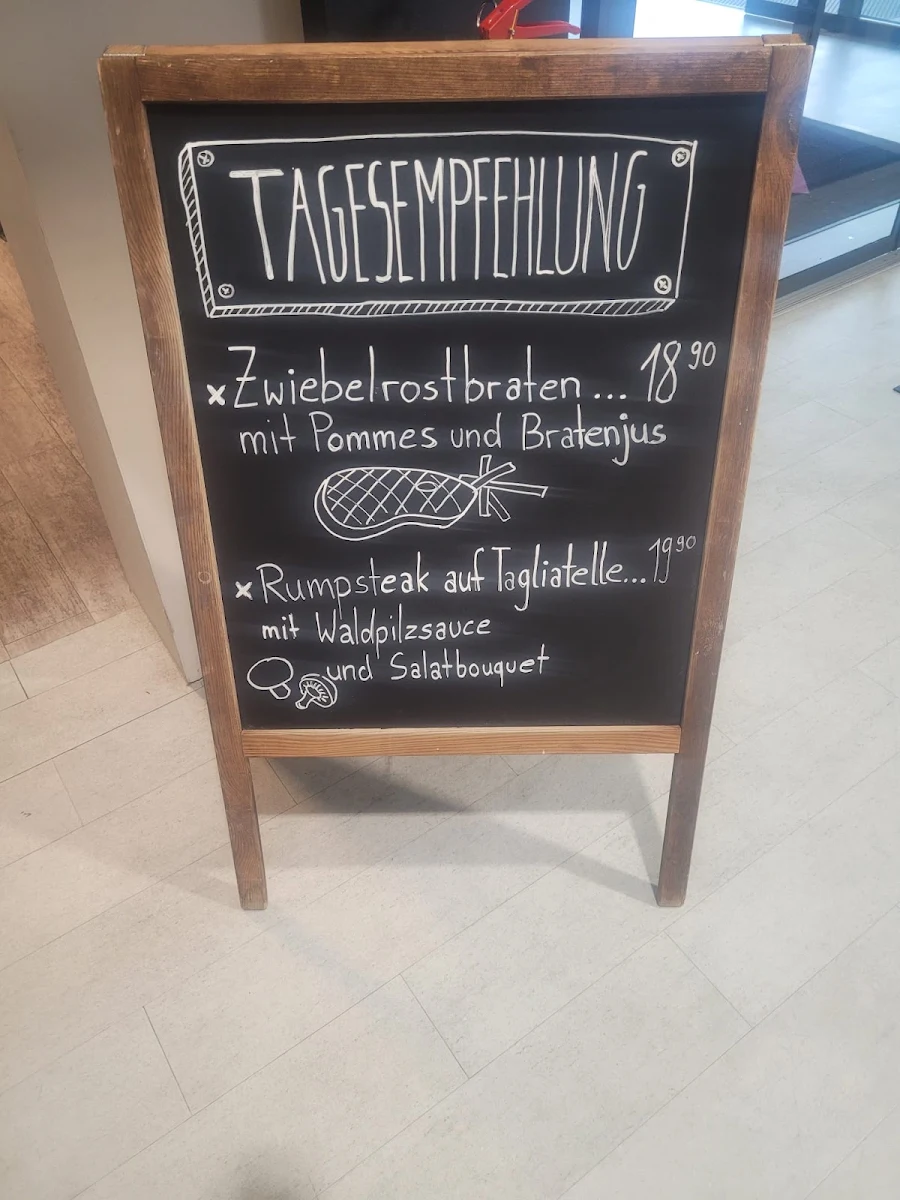 TAGESEMPFEHLUNG
x Zwiebelrostbraten ... 18 90
mit Pommes und Bratenjus
x Rumpsteak auf Tagliatelle... 19 90
mit Waldpilzsauce
und Salatbouquet